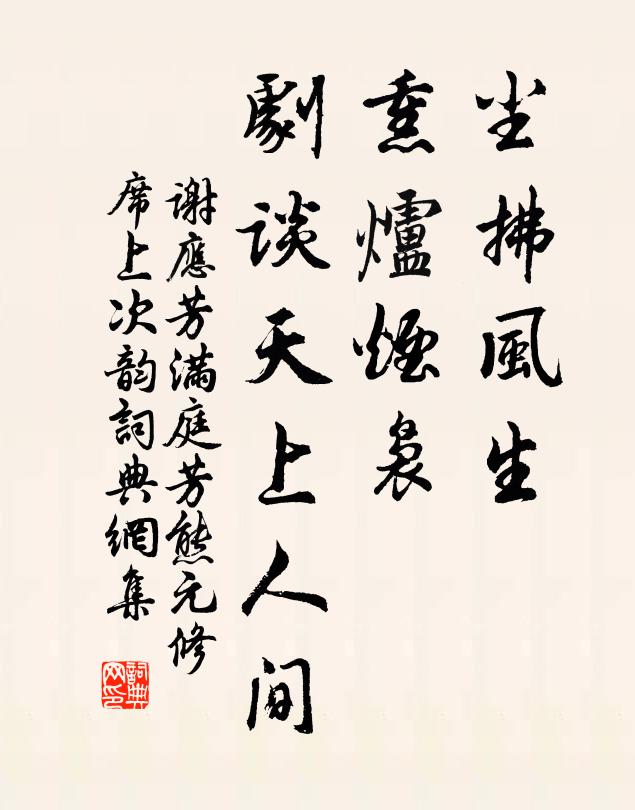 尘拂風生
熏爐煙裊
劇談天上人间
謝應芳滿庭芳熊元修
席上次韵詞典網集
詞典网印